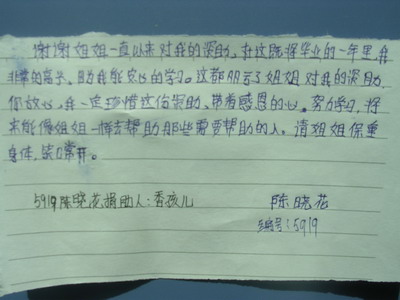 谢谢姐姐一直以来对我的资助,在这既将毕业的一年里,我
非常的高兴。助我能安心的学习。这都那亏了姐姐对我的资助,
你放心,我一定珍惜这份资助、带着感恩的心。努力学习,将
来能像姐姐一样去帮助那些需要帮助的人。请姐姐保重
身体,笑口常开。
5919陈晓花捐助人:香孩儿 陈晓花
编号:5919